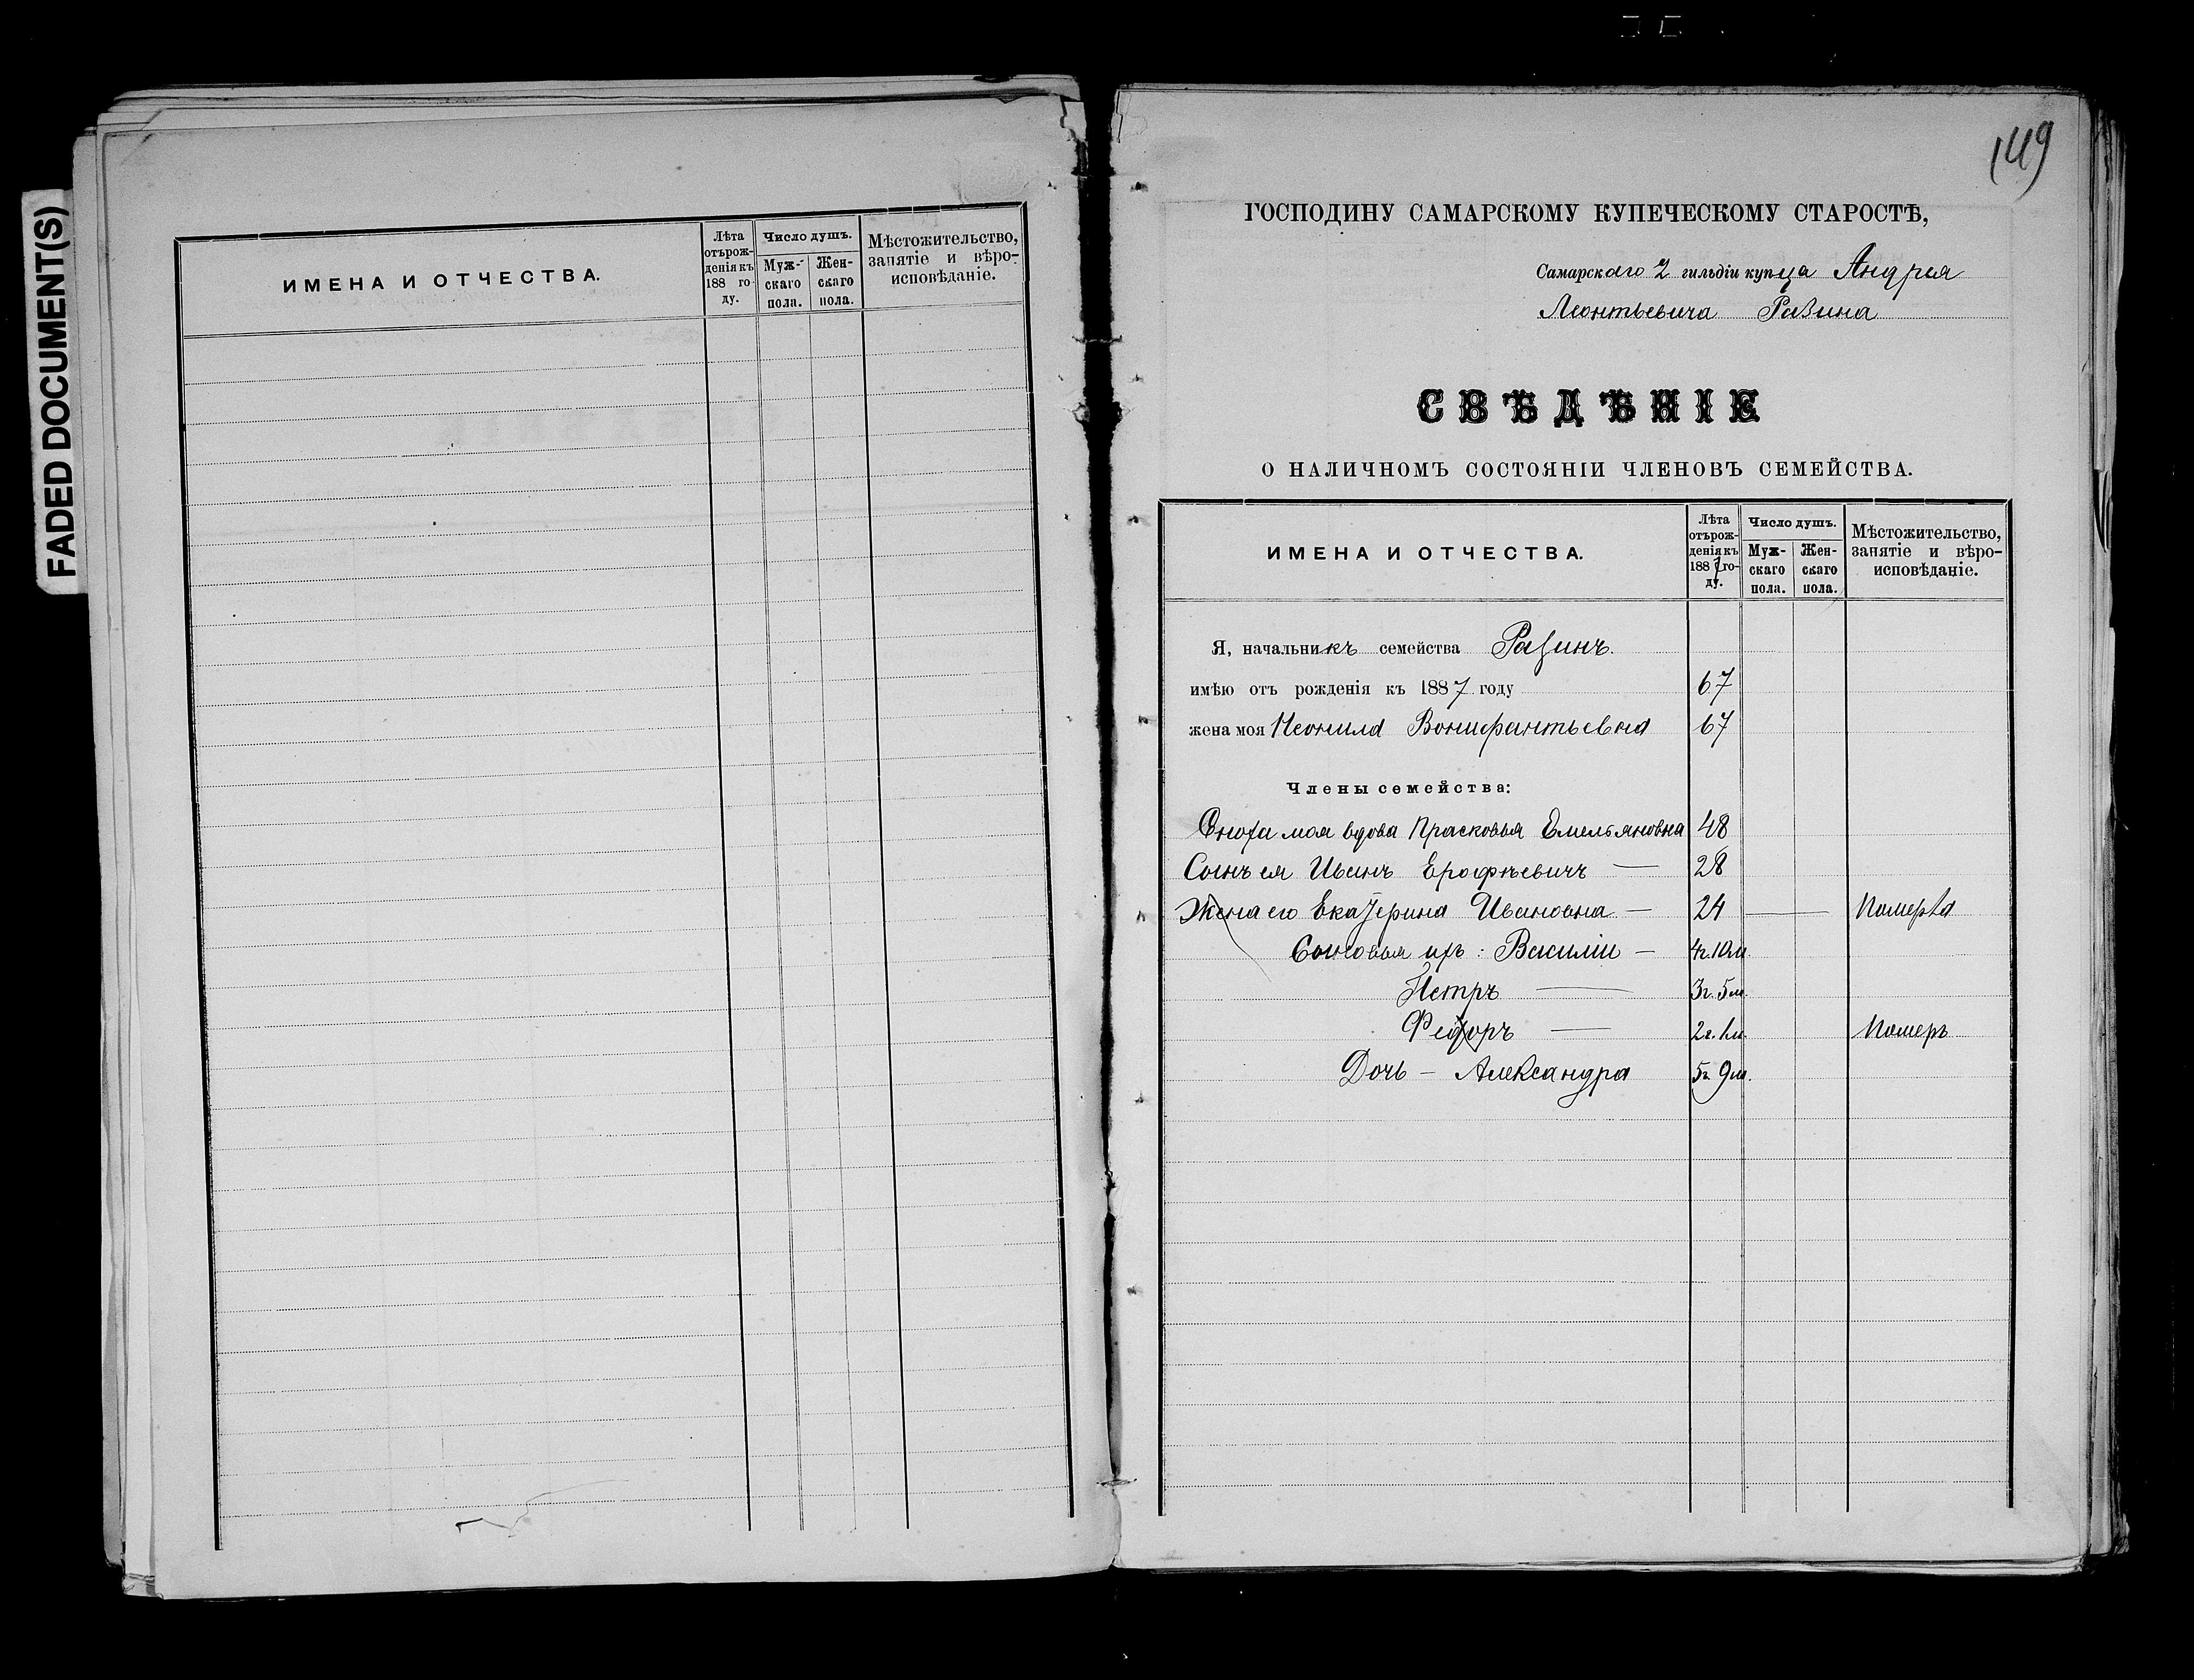 FADED DOCUMENT(S)
ИМЕНА И ОТЧЕСТВА.
Лѣта отъ рожденія къ 188 году.
Число душъ.
Мужскаго пола.
Женскаго пола.
Мѣстожительство, занятіе и вѣроисповѣданіе.
149
ГОСПОДИНУ САМАРСКОМУ КУПЕЧЕСКОМУ СТАРОСТѢ,
Самарскаго 2 гильдіи купца Андрея
Леонтьевича Разина
СВѢДѢНІЕ
О НАЛИЧНОМЪ СОСТОЯНІИ ЧЛЕНОВЪ СЕМЕЙСТВА.
ИМЕНА И ОТЧЕСТВА.
Лѣта отъ рожденія къ 1887 году.
Число душъ.
Мужскаго пола.
Женскаго пола.
Мѣстожительство, занятіе и вѣроисповѣданіе.
Я, начальникъ семейства Разинъ.
имѣю отъ рожденія къ 1887 году 67
жена моя Неонила Вонифантьевна 67
Члены семейства:
Сноха моя вдова Прасковья Емельяновна 48
Сынъ ея Иванъ Ерофѣевичъ — 28
Жена его Екатерина Ивановна — 24 — Померла
Сыновья ихъ: Василіи — 4г. 10м.
Петръ — 3г. 5м.
Федоръ — 2г. 1м. Померъ
Дочь — Александра 5г. 9м.